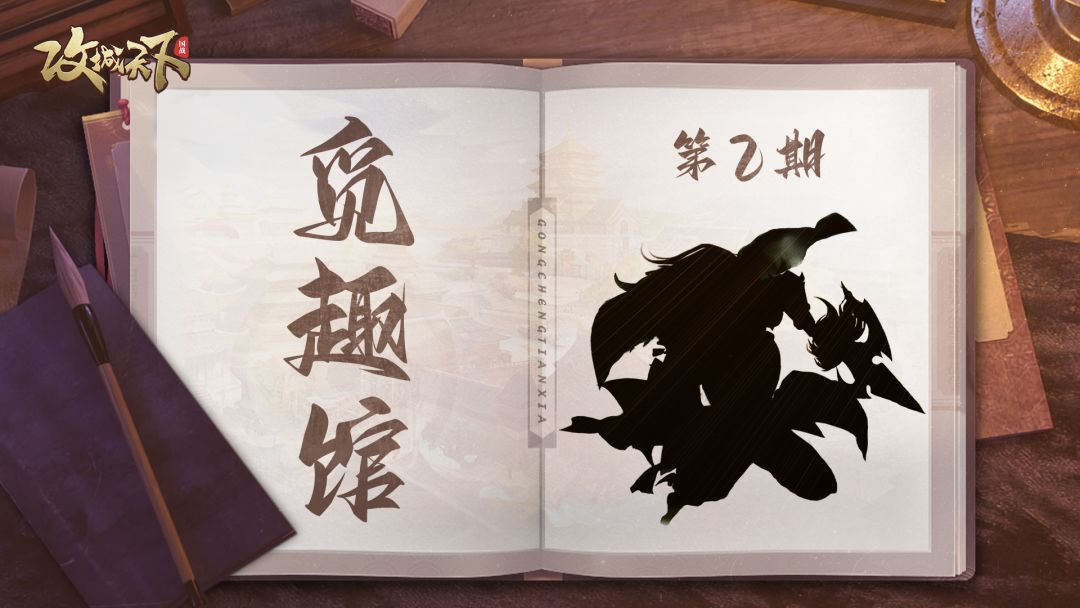 攻城天下
国战
觅趣馆
第2期
GONGCHENGTIANXIA